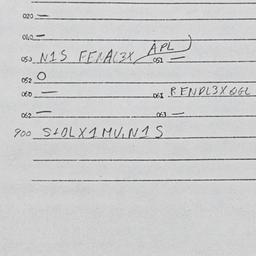 020 —
040 —
050 N1S FEMAL3X APL 051 —
052 O
060 — 061 RENDL3XQGL
062 — 063 —
900 S+OLX1MV,N1S